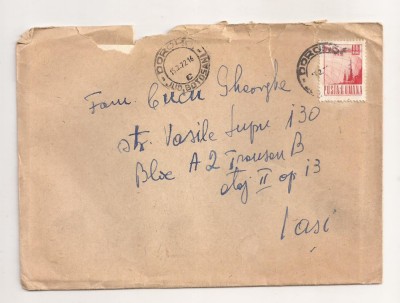 DOROHOI
JUD. BOTOSANI
C
POSTA ROMANA
Fam. Cucu Gheorghe
str. Vasile Lupu 130
Bloc A 2 Tronson B
etaj II ap 13
Iași